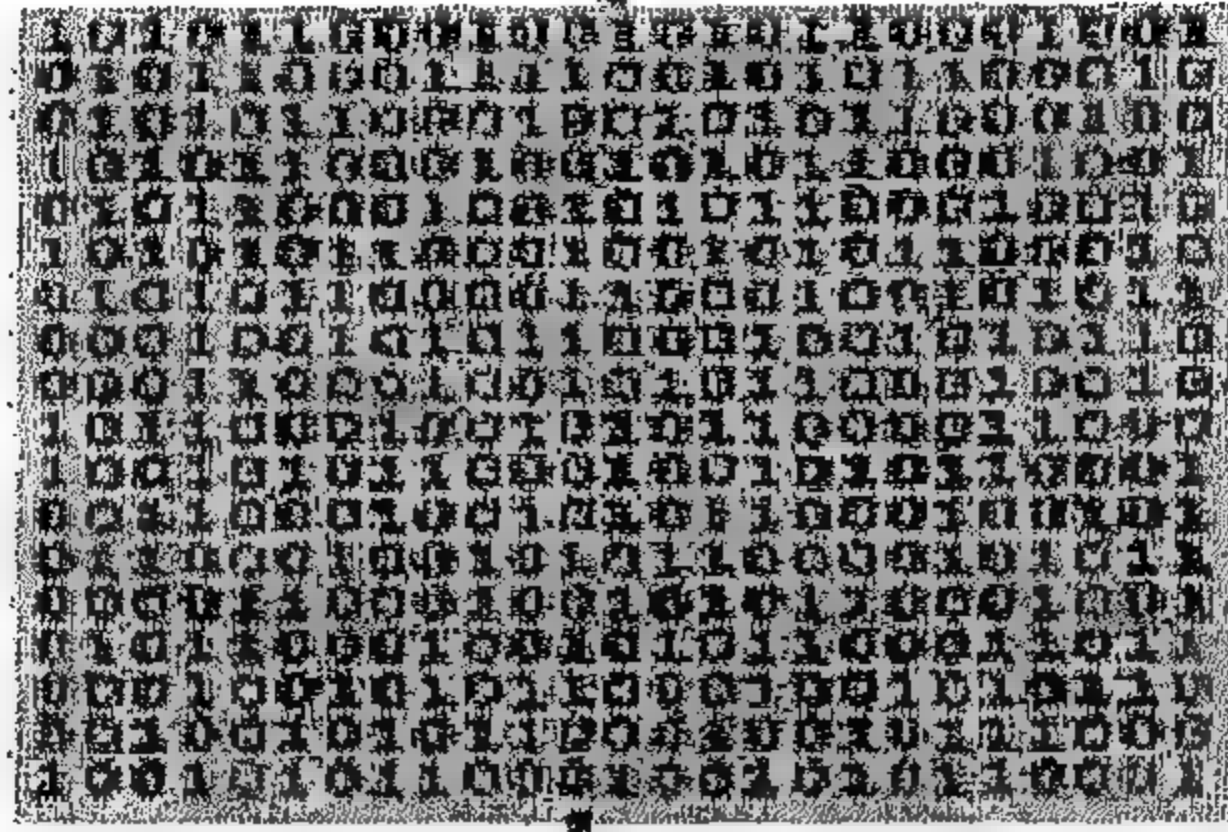 1010110001001010110001001
0101100011110010101100010
0101011000100101011000100
1010110001001010110001001
0101100010010101100010010
1010101100010010101100010
0101011000011000100101011
0001001010110001001010110
0001100010010101100010010
1011000100101011000011000
1001010110001001010110001
0011000100101011000100101
0110001001010110000101011
0000110001001010110001001
0101100010010101100011011
0001001010110001001010110
1001010110001001010110001